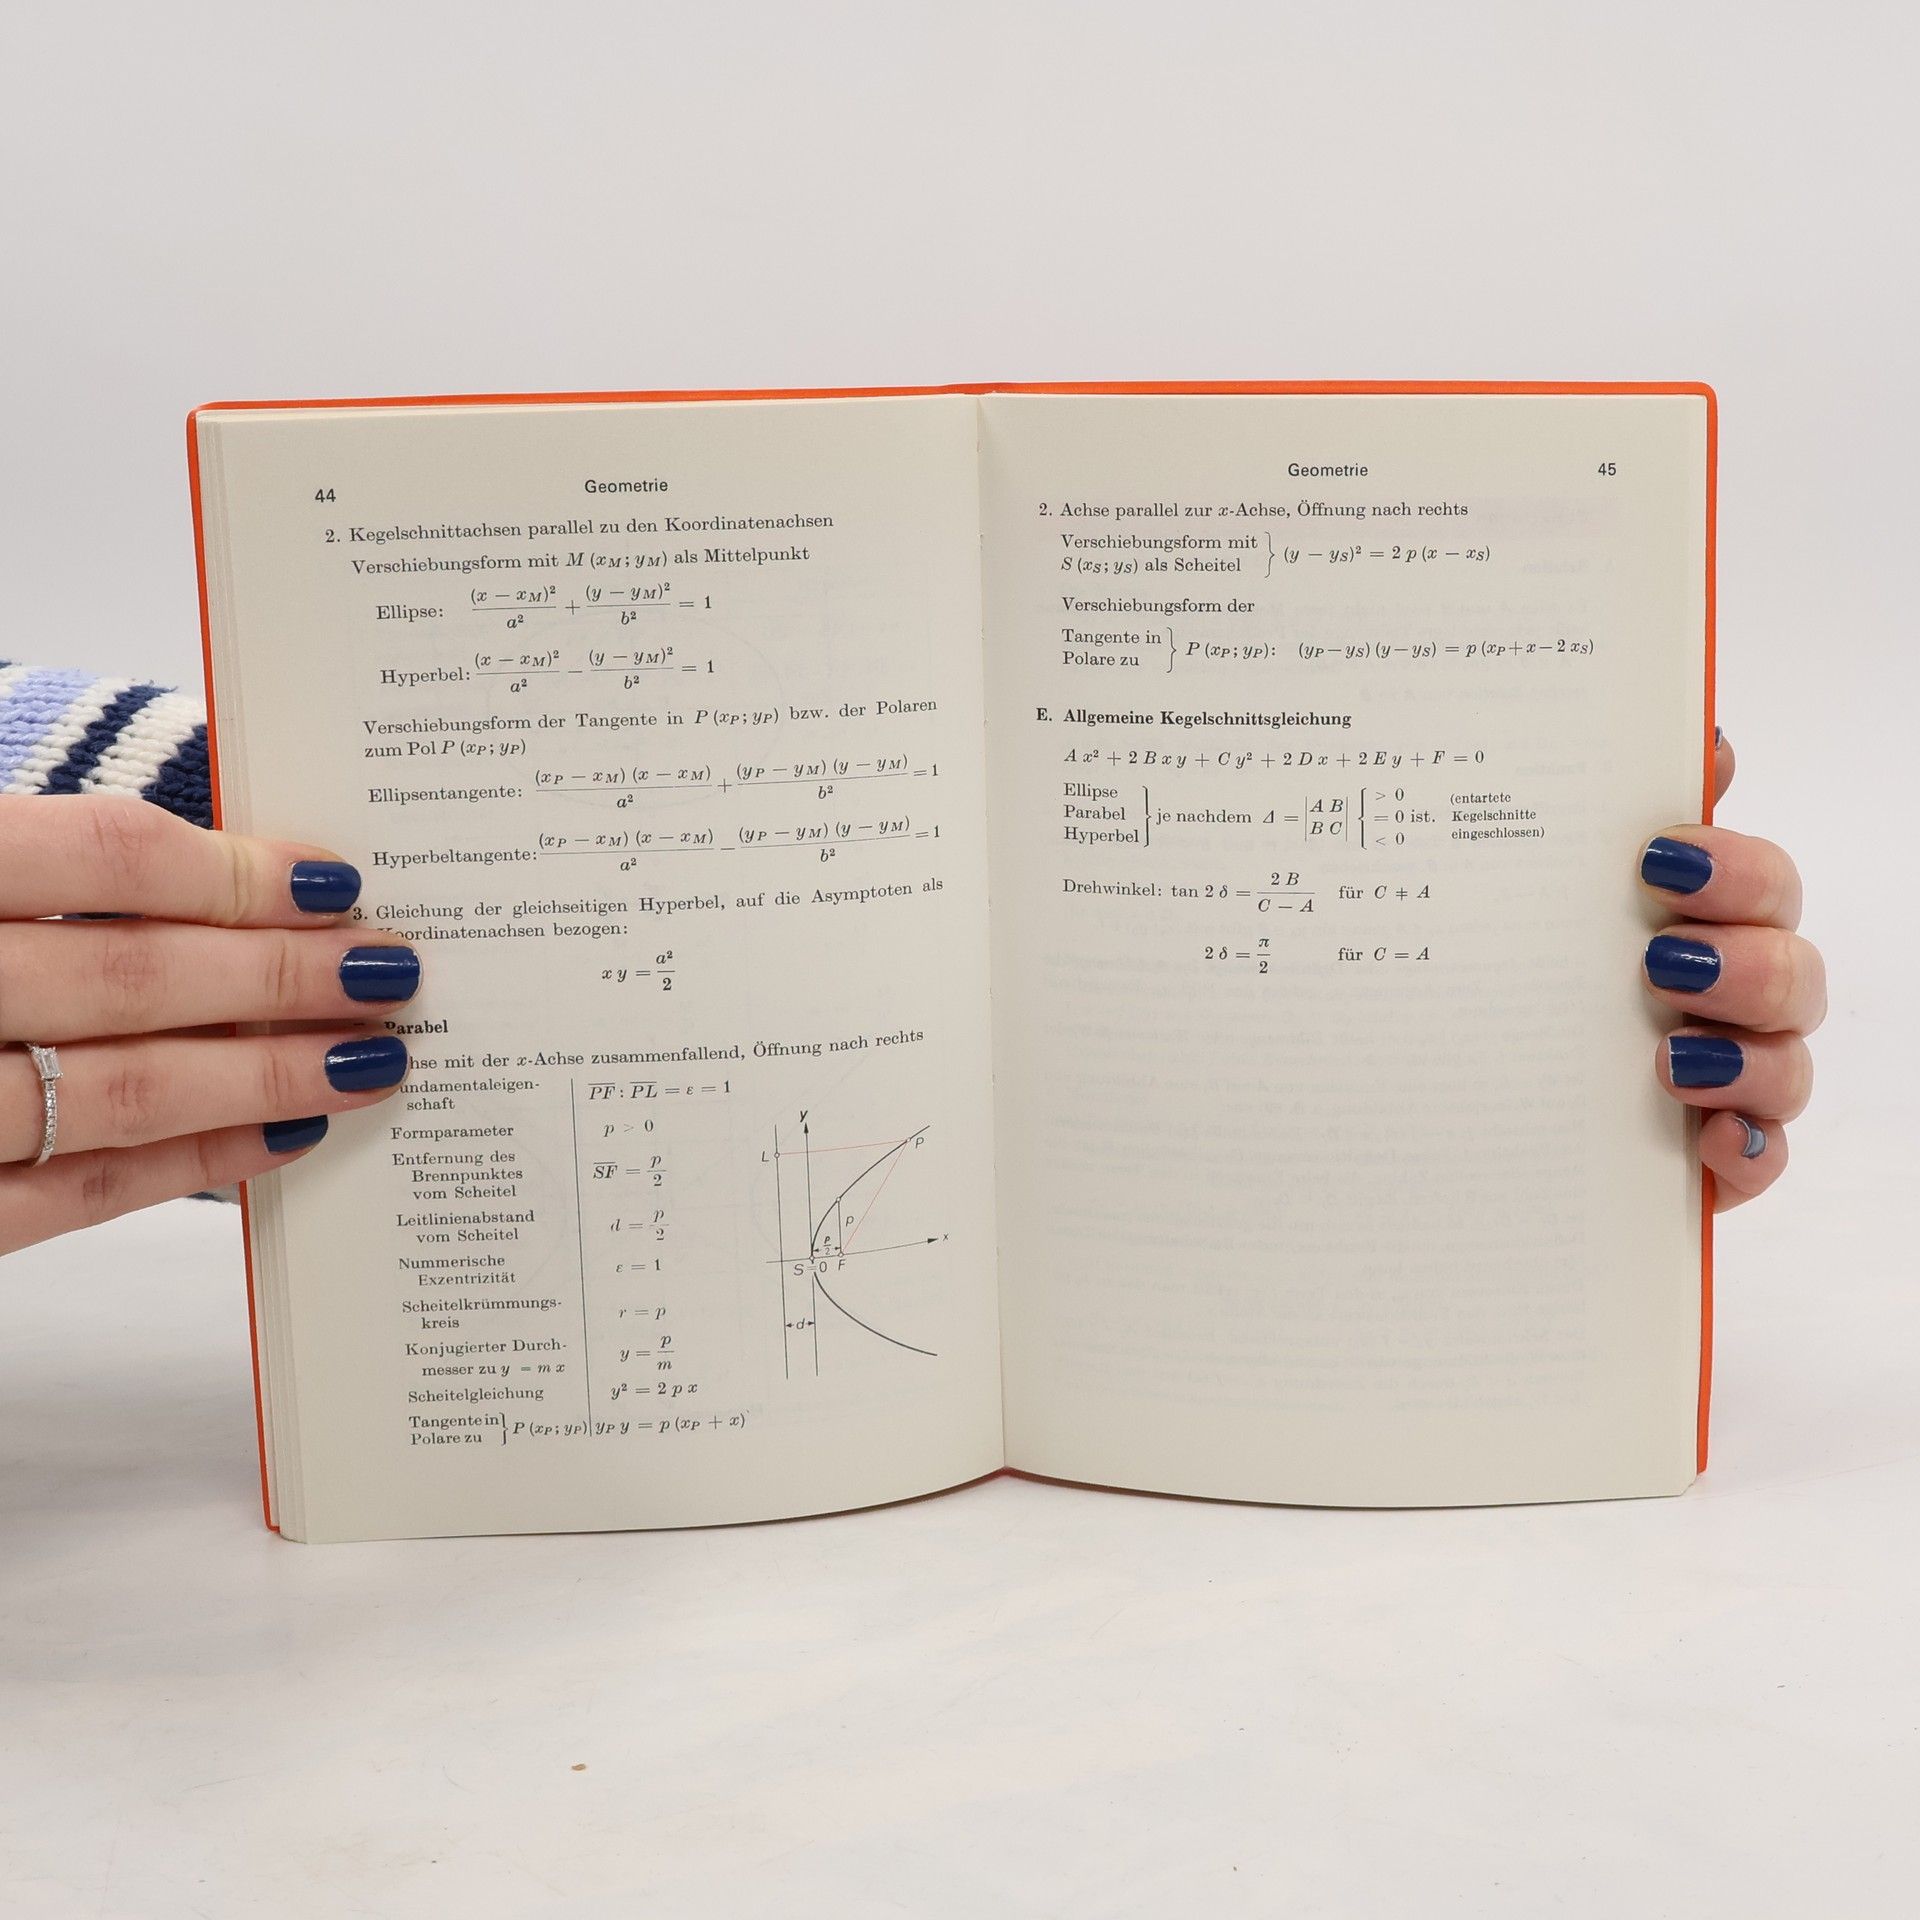 44
Geometrie
2. Kegelschnittachsen parallel zu den Koordinatenachsen
Verschiebungsform mit M (x_M; y_M) als Mittelpunkt
Ellipse: (x − x_M)²/a² + (y − y_M)²/b² = 1
Hyperbel: (x − x_M)²/a² − (y − y_M)²/b² = 1
Verschiebungsform der Tangente in P (x_P; y_P) bzw. der Polaren
zum Pol P (x_P; y_P)
Ellipsentangente: (x_P − x_M) (x − x_M)/a² + (y_P − y_M) (y − y_M)/b² = 1
Hyperbeltangente: (x_P − x_M) (x − x_M)/a² − (y_P − y_M) (y − y_M)/b² = 1
3. Gleichung der gleichseitigen Hyperbel, auf die Asymptoten als
oordinatenachsen bezogen:
x y = a²/2
Parabel
hse mit der x-Achse zusammenfallend, Öffnung nach rechts
undamentaleigen-
schaft
P̅F̅ : P̅L̅ = ε = 1
Formparameter
p > 0
Entfernung des
Brennpunktes
vom Scheitel
S̅F̅ = p/2
Leitlinienabstand
vom Scheitel
d = p/2
Nummerische
Exzentrizität
ε = 1
Scheitelkrümmungs-
kreis
r = p
Konjugierter Durch-
messer zu y = m x
y = p/m
Scheitelgleichung
y² = 2 p x
Tangente in
Polare zu
} P (x_P; y_P) | y_P y = p (x_P + x)
y
L
P
p
p/2
x
S=0 F
d
Geometrie
45
2. Achse parallel zur x-Achse, Öffnung nach rechts
Verschiebungsform mit
S (x_S; y_S) als Scheitel
} (y − y_S)² = 2 p (x − x_S)
Verschiebungsform der
Tangente in
Polare zu
} P (x_P; y_P): (y_P − y_S) (y − y_S) = p (x_P + x − 2 x_S)
E. Allgemeine Kegelschnittsgleichung
A x² + 2 B x y + C y² + 2 D x + 2 E y + F = 0
Ellipse
Parabel
Hyperbel
} je nachdem Δ = |A B
B C| {
> 0
= 0 ist.
< 0
(entartete
Kegelschnitte
eingeschlossen)
Drehwinkel: tan 2 δ = 2 B/(C − A) für C ≠ A
2 δ = π/2 für C = A